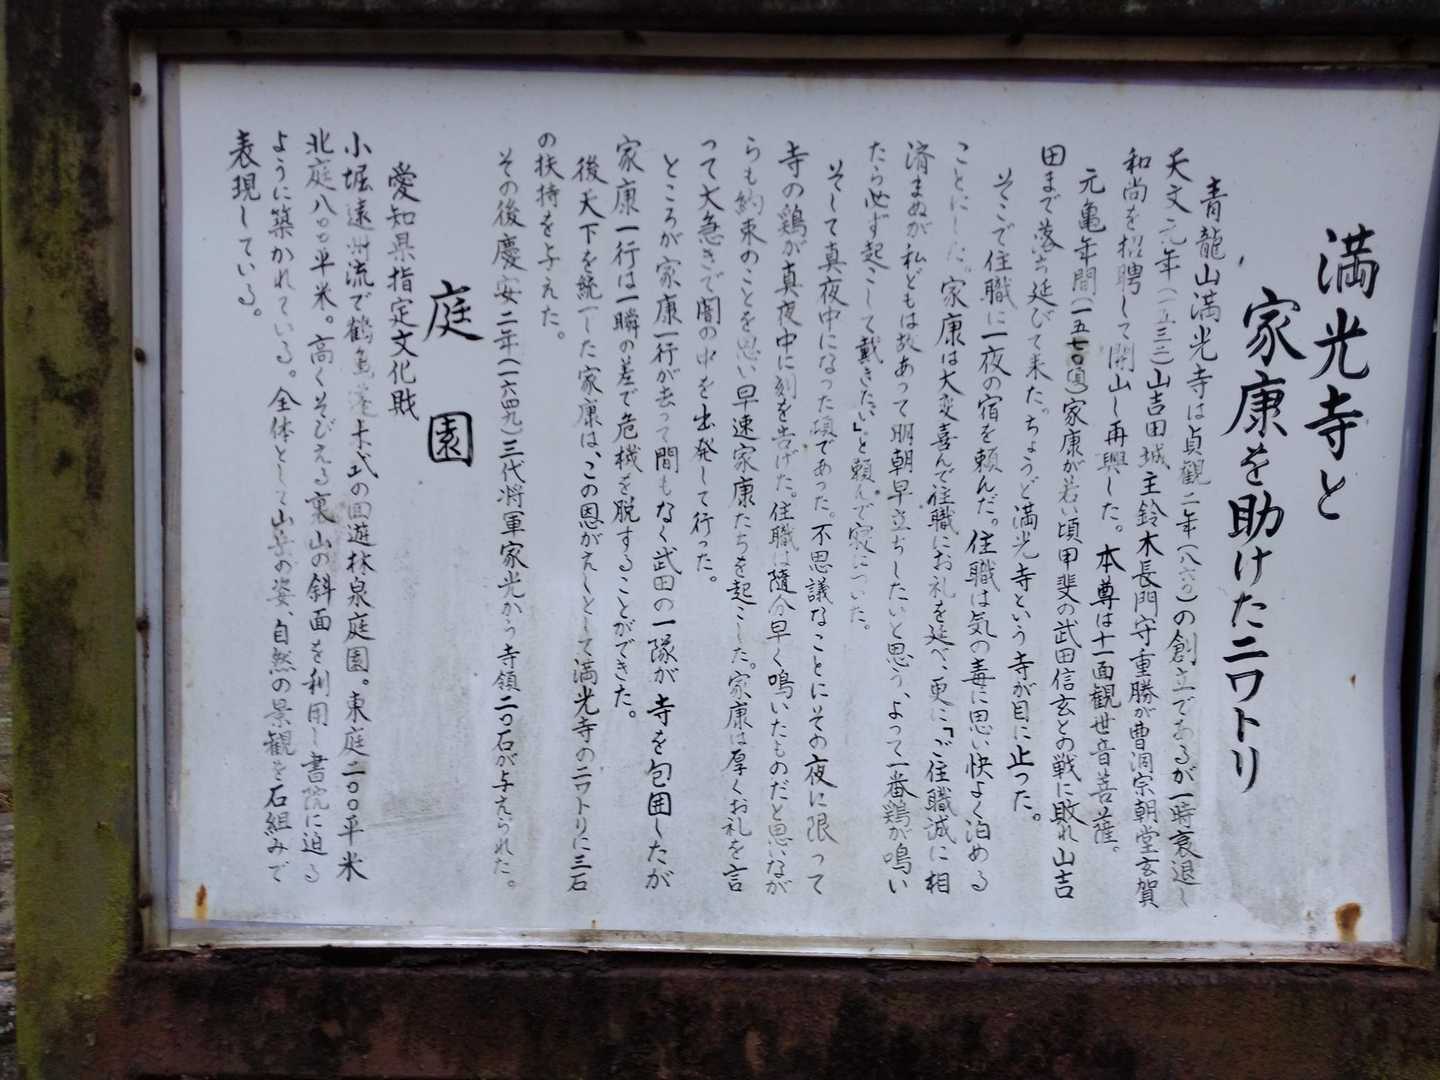 満光寺と
家康を助けたニワトリ
青龍山満光寺は貞観二年(八六〇)の創立であるが一時衰退し
天文元年(一五三二)山吉田城主鈴木長門守重勝が曹洞宗朝堂玄賀
和尚を招聘して開山し再興した。本尊は十一面観世音菩薩。
元亀年間(一五七〇頃)家康が若い頃甲斐の武田信玄との戦に敗れ山吉
田まで落ち延びて来た。ちょうど満光寺という寺が目に止った。
そこで住職に一夜の宿を頼んだ。住職は気の毒に思い快よく泊める
ことにした。家康は大変喜んで住職にお礼を延べ、更に「ご住職誠に相
済まぬが私どもは故あって明朝早立ちしたいと思う、よって一番鶏が鳴い
たら必ず起こして戴きたい」と頼んで寝についた。
そして真夜中になった頃であった。不思議なことにその夜に限って
寺の鶏が真夜中に刻を告げた。住職は随分早く鳴いたものだと思いなが
らも約束のことを思い早速家康たちを起こした。家康は厚くお礼を言
って大急ぎで闇の中を出発して行った。
ところが家康一行が去って間もなく武田の一隊が寺を包囲したが
家康一行は一瞬の差で危機を脱することができた。
後天下を統一した家康は、この恩がえしとして満光寺のニワトリに三石
の扶持を与えた。
その後慶安二年(一六四九)三代将軍家光から寺領二〇石が与えられた。
庭園
愛知県指定文化財
小堀遠州流で鶴亀蓬莱式の回遊林泉庭園。東庭二〇〇平米
北庭八〇〇平米。高くそびえる裏山の斜面を利用し書院に迫る
ように築かれている。全体として山岳の姿、自然の景観を石組みで
表現している。